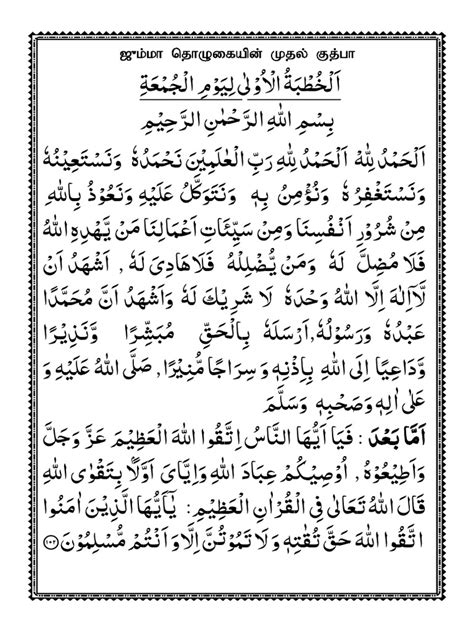 ஜும்மா தொழுகையின் முதல் குத்பா
اَلْخُطْبَةُ الْاُوْلٰى لِيَوْمِ الْجُمْعَةِ
بِسْمِ اللهِ الرَّحْمٰنِ الرَّحِيْمِ
اَلْحَمْدُ لِلّٰهْ اَلْحَمْدُ لِلّٰهِ رَبِّ الْعٰلَمِيْنَ نَحْمَدُهٗ وَنَسْتَعِيْنُهٗ
وَنَسْتَغْفِرُهٗ وَنُؤْمِنُ بِهٖ وَنَتَوَكَّلُ عَلَيْهِ وَنَعُوْذُ بِاللهِ
مِنْ شُرُوْرِ اَنْفُسِنَا وَمِنْ سَيِّئَاتِ اَعْمَالِنَا مَنْ يَّهْدِهِ اللهُ
فَلَا مُضِلَّ لَهٗ وَمَنْ يُّضْلِلْهُ فَلَاهَادِىَ لَهٗ , اَشْهَدُ اَنْ
لَّآاِلٰهَ اِلَّا اللهُ وَحْدَهٗ لَا شَرِيْكَ لَهٗ وَاَشْهَدُ اَنَّ مُحَمَّدًا
عَبْدُهٗ وَرَسُوْلُهٗ,اَرْسَلَهٗ بِالْحَقِّ مُبَشِّرًا وَّنَذِيْرًا
وَّدَاعِيًا اِلَى اللهِ بِاِذْنِهٖ وَسِرَاجًا مُّنِيْرًا, صَلَّى اللهُ عَلَيْهِ وَ
عَلٰى اٰلِهٖ وَصَحْبِهٖ وَسَلَّمَ
اَمَّا بَعْدَ : فَيَا اَيُّهَا النَّاسُ اِتَّقُوا اللهَ الْعَظِيْمَ عَزَّ وَجَلَّ
وَاَطِيْعُوْهُ , اُوْصِيْكُمْ عِبَادَ اللهِ وَاِيَّاىَ اَوَّلًا بِتَقْوَى اللهِ
قَالَ اللهُ تَعَالٰى فِى الْقُرْاٰنِ الْعَظِيْمِ : يٰٓاَيُّهَا الَّذِيْنَ اٰمَنُوا
اتَّقُوا اللهَ حَقَّ تُقٰتِهٖ وَلَا تَمُوْتُنَّ اِلَّا وَاَنْتُمْ مُّسْلِمُوْنَ ۝١٠٢